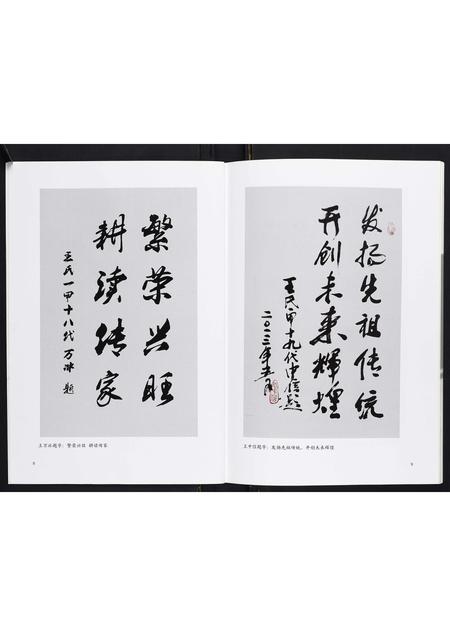 繁荣兴旺
耕读传家
王氏一甲十八代 万冰 题
王万冰题字：繁荣兴旺 耕读传家
8
发扬先祖传统
开创未来辉煌
王氏一甲十九代中信题
二〇一三年五月
王中信题字：发扬先祖传统，开创未来辉煌
9